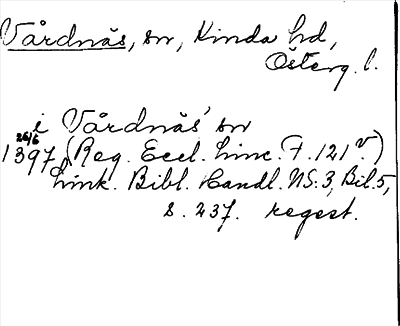 Vårdnäs, sn, Kinda hd,
Österg. l.
i Vårdnäs sn
26/6
1397 (Reg. Eccl. Linc. F. 121 v.)
Link. Bibl. Handl. NS. 3, Bil. 5,
s. 237. regest.